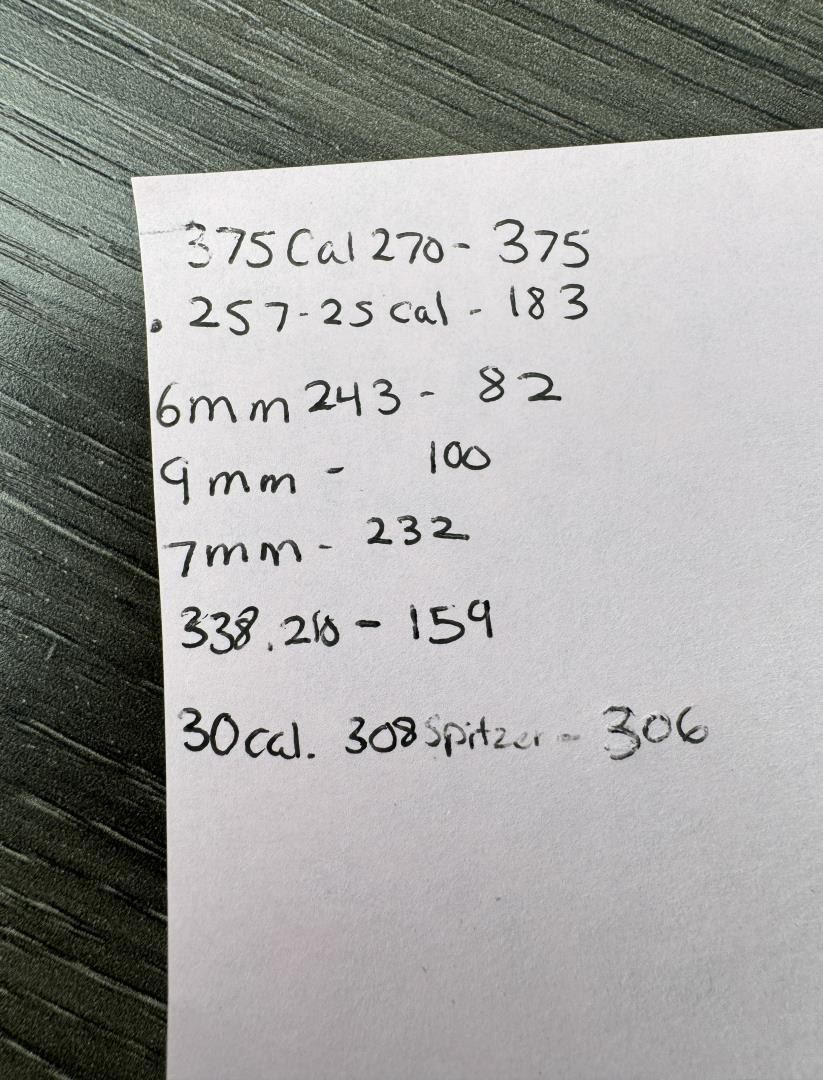 375 Cal 270 - 375
.257-25 cal - 183
6mm 243 - 82
9mm - 100
7mm - 232
338. 210 - 159
30cal. 308 Spitzer - 306